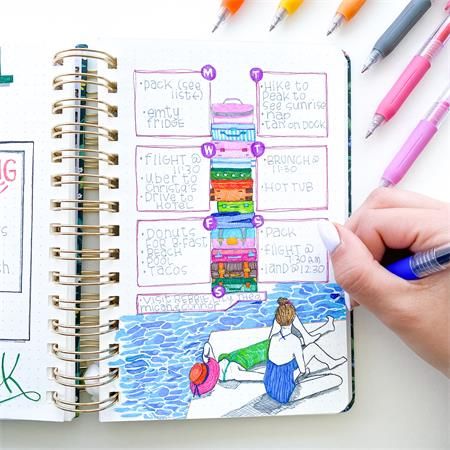 NG
K
M
• pack (see
list)
• emty
fridge
T
• Hike to
peak to
see sunrise
nap
• tan on dock
W
• flight @
11:30
• Uber to
Christa's
• Drive to
Hotel
T
• BRUNCH @
11:30
• HOT TUB
F
• Donuts
for B-fast
• Beach
• Pool
• Tacos
S
• Pack
• flight @
7:30 am
• land @ 12:30
S